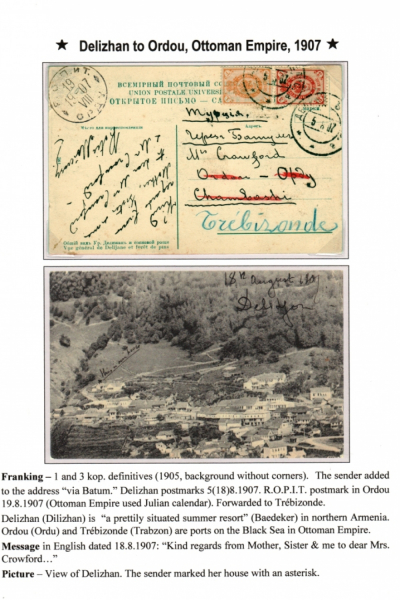 ★ Delizhan to Ordou, Ottoman Empire, 1907 ★
ВСЕМІРНЫЙ ПОЧТОВЫЙ СО
UNION POSTALE UNIVERS
ОТКРЫТОЕ ПИСЬМО — CA
Турція.
Черезъ Батумъ
Mrs Crawford
Ordou
Trébizonde
18th August 1907
Delijan
Franking – 1 and 3 kop. definitives (1905, background without corners). The sender added
to the address “via Batum.” Delizhan postmarks 5(18)8.1907. R.O.P.I.T. postmark in Ordou
19.8.1907 (Ottoman Empire used Julian calendar). Forwarded to Trébizonde.
Delizhan (Dilizhan) is “a prettily situated summer resort” (Baedeker) in northern Armenia.
Ordou (Ordu) and Trébizonde (Trabzon) are ports on the Black Sea in Ottoman Empire.
Message in English dated 18.8.1907: “Kind regards from Mother, Sister & me to dear Mrs.
Crowford…”
Picture – View of Delizhan. The sender marked her house with an asterisk.